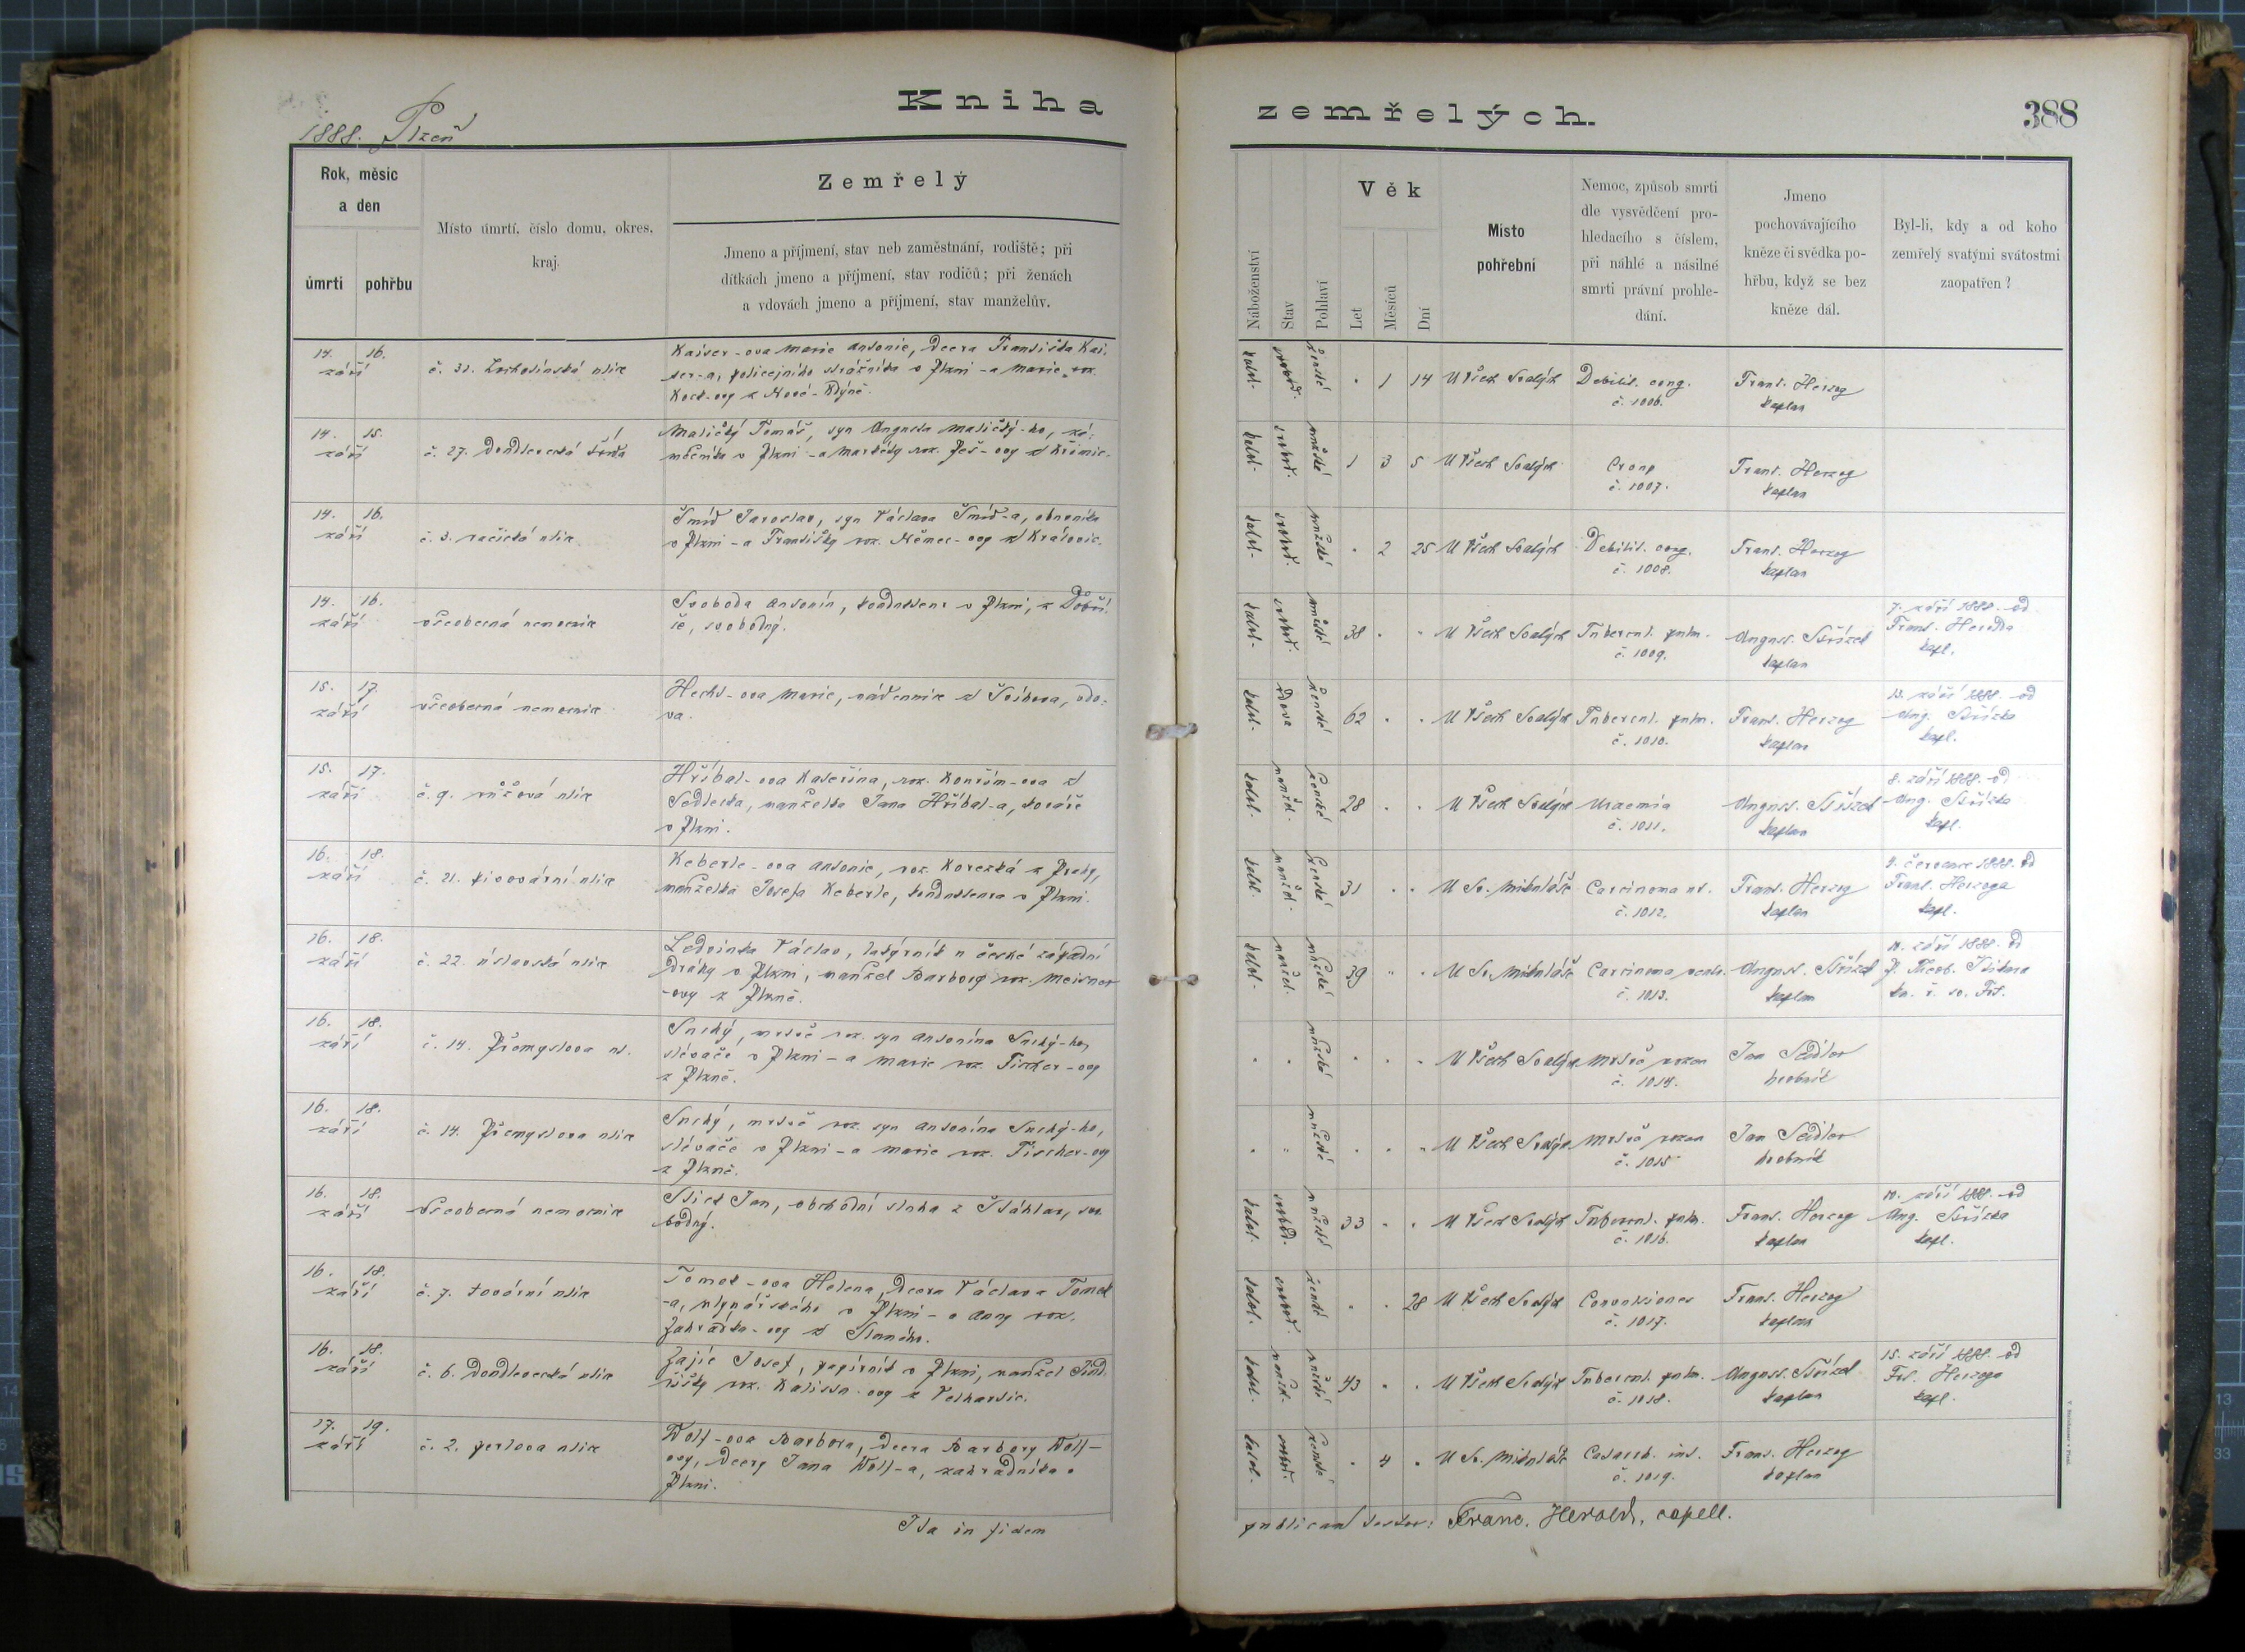 Kniha
1888. Plzeň
Rok, měsíc
a den
úmrtí
pohřbu
Místo úmrtí, číslo domu, okres,
kraj.
Zemřelý
Jmeno a příjmení, stav neb zaměstnání, rodiště; při
dítkách jmeno a příjmení, stav rodičů; při ženách
a vdovách jmeno a příjmení, stav manželův.
14. 16.
září
č. 31. Lochotínská ulice
Kaiser-ova Marie Antonie, dcera Františka Kai-
ser-a, policejního strážníka v Plzni - a Marie roz.
14. 15.
září
č. 27. Doudlevecká
Maličký Tomáš, syn Augusta Maličký-ho, zá-
mečníka v Plzni - a Markéty roz. Peš-ovy z Křimic.
14. 16.
září
č. 3. ulice
Šmíd Jaroslav, syn Václava Šmíd-a, obuvníka
v Plzni - a Františky roz. Němec-ovy z Kralovic.
14. 16.
září
všeobecná nemocnice
Svoboda Antonín, kondukteur v Plzni, z Dobří-
še, svobodný.
15. 17.
září
všeobecná nemocnice
Hecht-ova Marie, nádennice z Švihova, vdo-
va.
15. 17.
září
č. 9. růžová ulice
Hříbal-ova Kateřina, roz. Kouřim-ova z
Sedlecka, manželka Jana Hříbal-a, kováře
v Plzni.
16. 18.
září
č. 21. pivovární ulice
Keberle-ova Antonie, roz. Korecká z Prahy,
manželka Josefa Keberle, kondukteura v Plzni.
16. 18.
září
č. 22. úslavská ulice
Ledvinka Václav, lakýrník u české západní
dráhy v Plzni, manžel Barbory roz. Meisner
-ovy z Plzně.
16. 18.
září
č. 14. Přemyslova ul.
Suchý, mrtvě roz. syn Antonína Suchý-ho,
slévače v Plzni - a Marie roz. Fischer-ovy
z Plzně.
16. 18.
září
č. 14. Přemyslova ulice
Suchý, mrtvě roz. syn Antonína Suchý-ho,
slévače v Plzni - a Marie roz. Fischer-ovy
z Plzně.
16. 18.
září
Všeobecná nemocnice
Jan, obchodní sluha z Šťáhlav, svo-
bodný.
16. 18.
září
č. 7. tovární ulice
Tomek-ova Helena, dcera Václava Tomek
-a, mlynářského v Plzni - a Anny roz.
Zahrádka-ovy z
16. 18.
září
č. 6. Doudlevecká ulice
Zajíc Josef, papírník v Plzni, manžel
roz.
17. 19.
září
č. 2. perlova ulice
Wolf-ova Barbora, dcera Barbory Wolf-
ovy, dcery Jana Wolf-a, zahradníka v
Plzni.
Ita in fidem
zemřelých.
388
Náboženství
Stav
Pohlaví
Věk
Let
Měsíců
Dní
Místo
pohřební
Nemoc, způsob smrti
dle vysvědčení pro-
hledacího s číslem,
při náhlé a násilné
smrti právní prohle-
dání.
Jmeno
pochovávajícího
kněze či svědka po-
hřbu, když se bez
kněze dál.
Byl-li, kdy a od koho
zemřelý svatými svátostmi
zaopatřen?
katol. svobod. ženské . 1 14 U Všech Svatých Debilit. cong. Frant. Herzog
č. 1006. kaplan
katol. svobod. mužské 1 3 5 U Všech Svatých Croup Frant. Herzog
č. 1007. kaplan
katol. svobod. mužské . 2 25 U Všech Svatých Debilit. cong. Frant. Herzog
č. 1008. kaplan
katol. svobod. mužské 38 . . U Všech Svatých Tubercul. pulm. August. Střízek
č. 1009. kaplan
7. září 1888. od
Frant. Herolda
kapl.
katol. vdova ženské 62 . . U Všech Svatých Tubercul. pulm. Frant. Herzog
č. 1010. kaplan
13. září 1888. od
Aug. Střízka
kapl.
katol. manžel. ženské 28 . . U Všech Svatých Uraemia August. Střízek
č. 1011. kaplan
8. září 1888. od
Aug. Střízka
kapl.
katol. manžel. ženské 31 . . U Sv. Mikuláše Carcinoma ut. Frant. Herzog
č. 1012. kaplan
9. července 1888. od
Frant. Herzoga
kapl.
katol. manžel. mužské 39 . . U Sv. Mikuláše Carcinoma ventr. August. Střízek
č. 1013. kaplan
září 1888. od
. . mužské . . . U Všech Svatých mrtvě rozen Jan Seidler
č. 1014. hrobník
. . mužské . . . U Všech Svatých mrtvě rozen Jan Seidler
č. 1015 hrobník
katol. svobod. mužské 33 . . U Všech Svatých Tubercul. pulm. Frant. Herzog
č. 1016. kaplan
10. září 1888. od
Aug. Střízka
kapl.
katol. svobod. ženské . . 28 U Všech Svatých Convulsiones Frant. Herzog
č. 1017. kaplan
katol. manžel. mužské 43 . . U Všech Svatých Tubercul. pulm. August. Střízek
č. 1018. kaplan
15. září 1888. od
Frt. Herzoga
kapl.
katol. svobod. ženské . 4 . U Sv. Mikuláše Catarrh. int. Frant. Herzog
č. 1019. kaplan
publicam testor: Franc. Herold, capell.